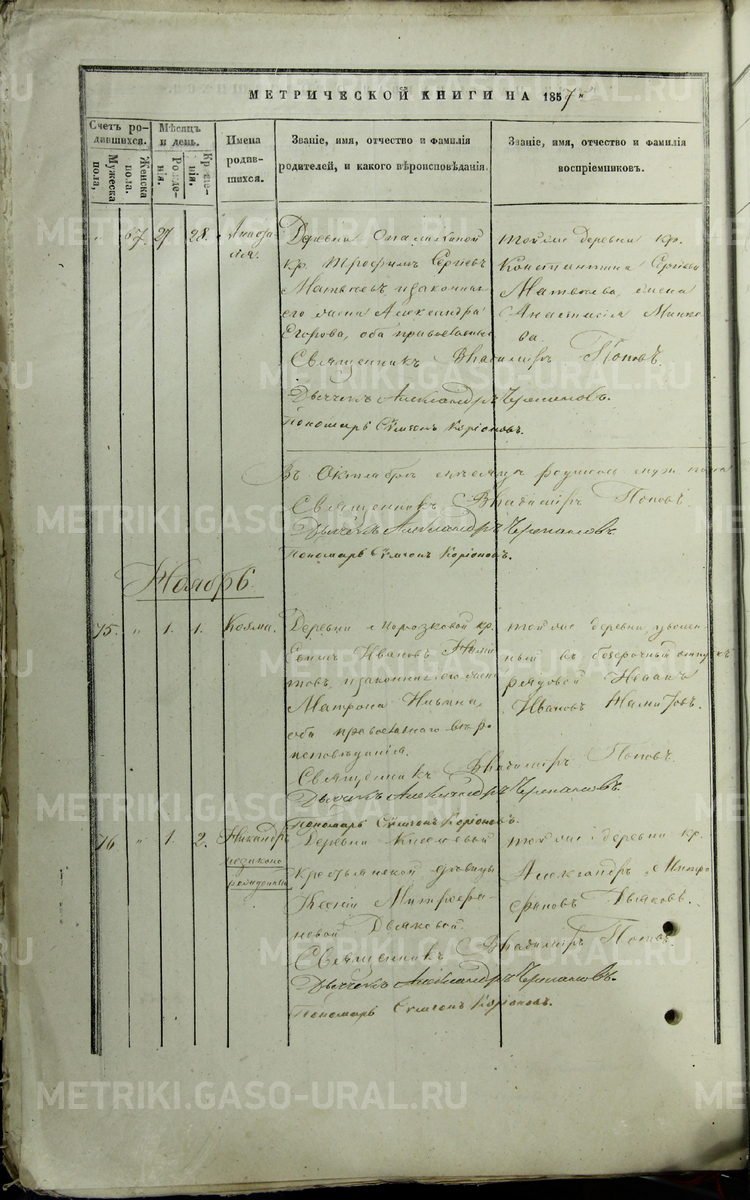 МЕТРИЧЕСКОЙ КНИГИ НА 1857
Счетъ родившихся.
Мужеска пола,
Женска пола.
Мѣсяцъ и день.
Рожденія.
Крещенія.
Имена родившихся.
Званіе, имя, отчество и фамилія родителей, и какого вѣроисповѣданія.
Званіе, имя, отчество и фамилія воспріемниковъ.
" 67. 27 28.
Деревни
кр. Трофимъ Сергѣевъ
Матвѣевъ и законная
его жена Александра
Егорова, оба православные
тойже деревни кр.
Константинъ Сергѣевъ
Матвѣева, жена
Анастасія
Священникъ Владиміръ Поповъ.
Дьячекъ Александръ Черепановъ.
Пономарь Сѵмеонъ Коріоновъ.
Въ Октябрѣ мѣсяцѣ родилось муж. пола
Священникъ Владиміръ Поповъ
Дьячекъ Александръ Черепановъ
Пономарь Сѵмеонъ Коріоновъ.
Ноябрь.
75. " 1. 1. Козма.
Деревни кр.
Иванов
и законная его жена
Матрона Ильина,
оба православнаго вѣро
исповѣданія.
тойже деревни, уволен
ный въ безсрочный отпускъ
рядовой Иванъ
Ивановъ
Священникъ Владиміръ Поповъ.
Дьячекъ Александръ Черепановъ.
Пономарь Сѵмеонъ Коріоновъ.
76. " 1. 2. Никандръ
незаконо
рожденный
Деревни
крестьянской дѣвицы
Ксеніи Митрофа
новой Дьяковой.
тойже деревни кр.
Александръ Митро
фановъ Дьяковъ.
Священникъ Владиміръ Поповъ.
Дьячекъ Александръ Черепановъ.
Пономарь Сѵмеонъ Коріоновъ.
METRIKI.GASO-URAL.RU